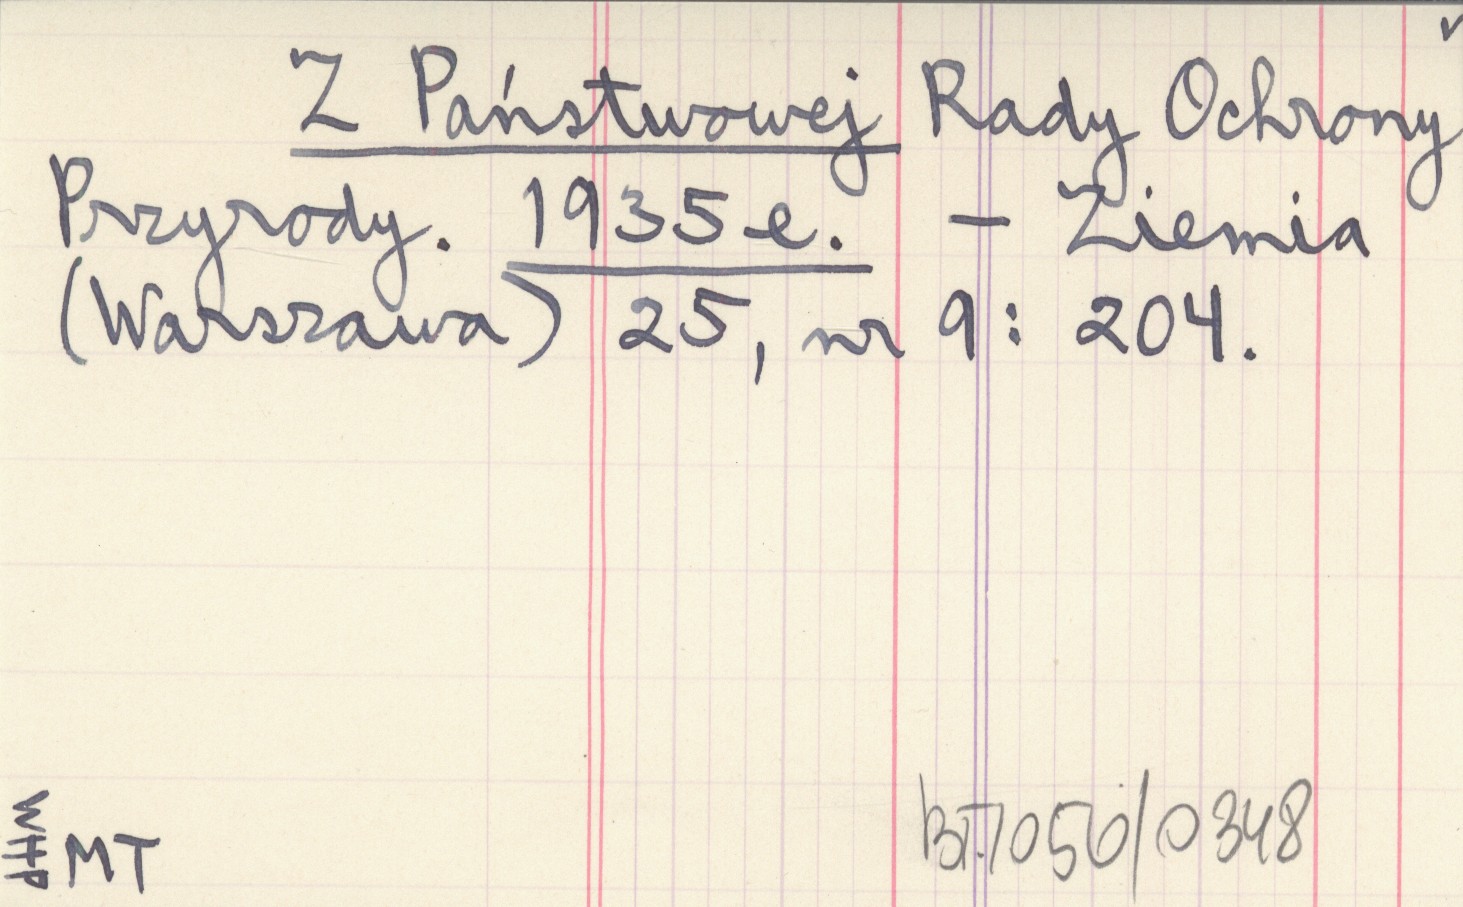 Z Państwowej Rady Ochrony
Przyrody. 1935 e. – Ziemia
(Warszawa) 25, nr 9: 204.
WHP
MT
BI.7050/0348